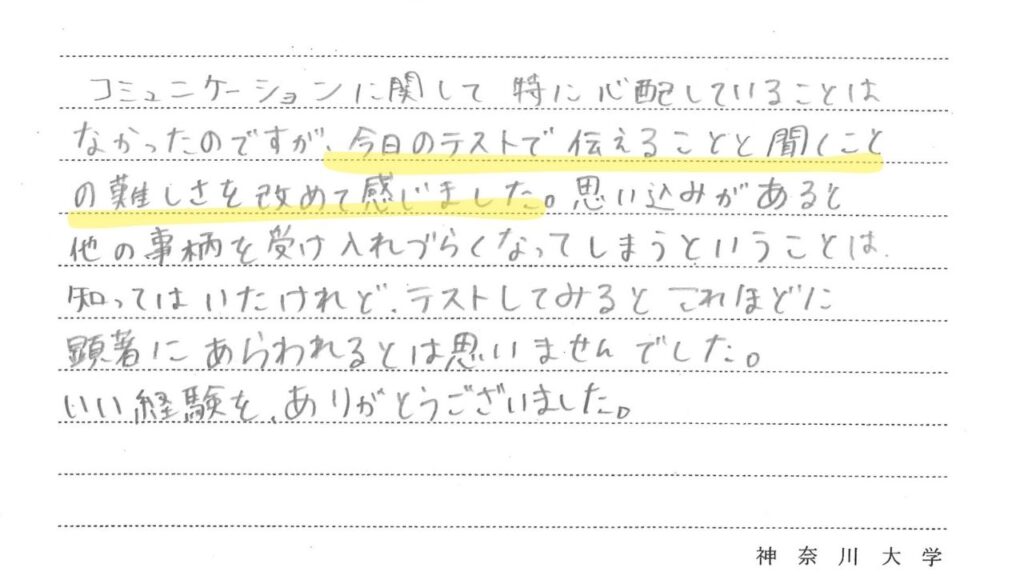 コミュニケーションに関して 特に心配していることは
なかったのですが、今日のテストで伝えることと聞くこと
の難しさを改めて感じました。思い込みがあると
他の事柄を受け入れづらくなってしまうということは、
知ってはいたけれど、テストしてみると これほどに
顕著に あらわれるとは思いませんでした。
いい経験を、ありがとうございました。
神奈川大学